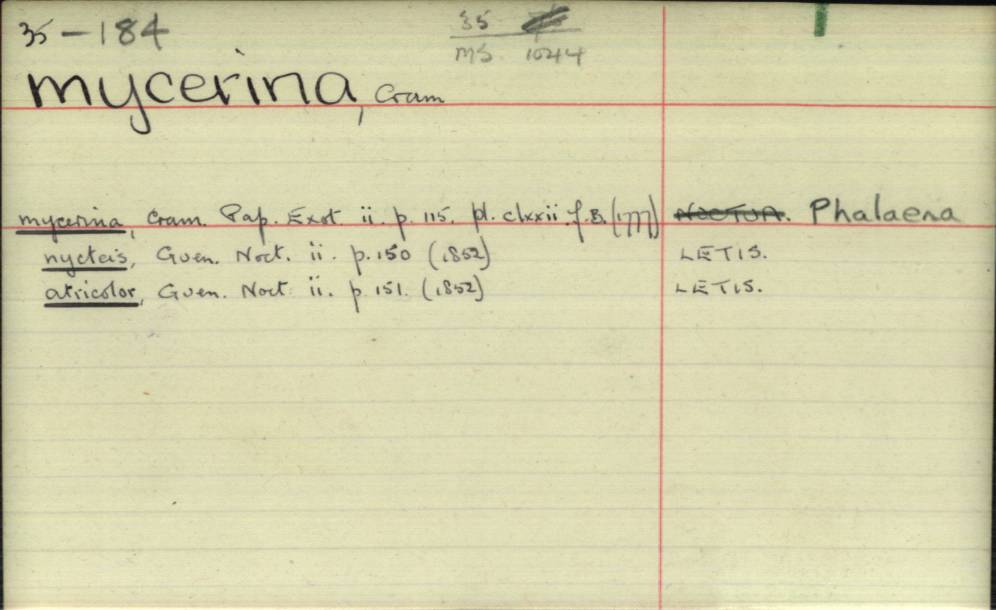 35-184
35
MS 1044
mycerina, Cram
mycerina, Cram. Pap. Exot. ii. p. 115. pl. clxxii. f. B. (1777) NOCTUA. Phalaena
nycteis, Guen. Noct. ii. p. 150 (1852) LETIS.
atricolor, Guen. Noct. ii. p. 151. (1852) LETIS.